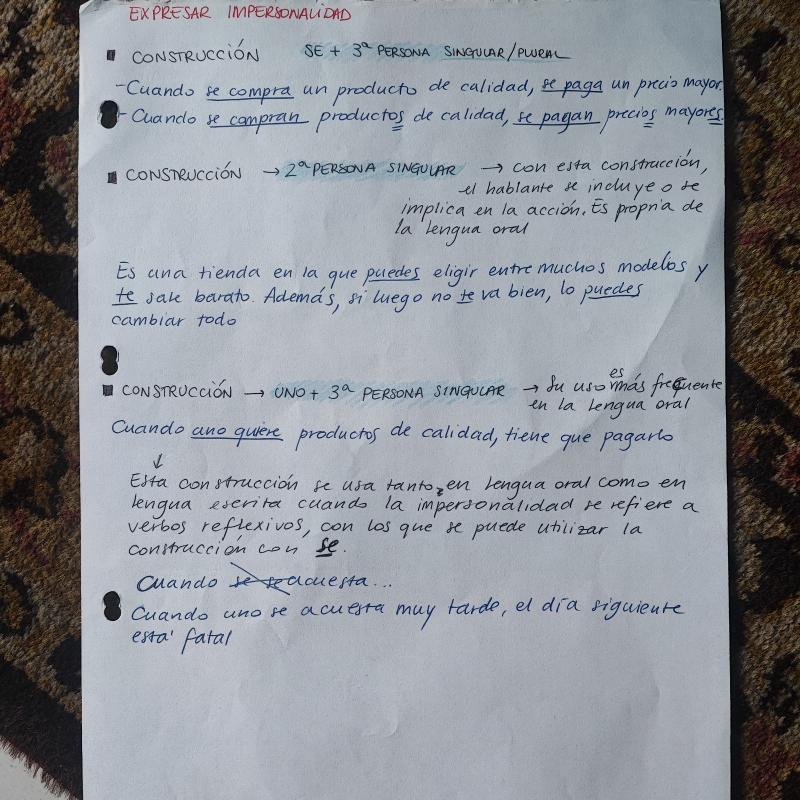 EXPRESAR IMPERSONALIDAD
CONSTRUCCIÓN SE + 3ª PERSONA SINGULAR/PLURAL
- Cuando se compra un producto de calidad, se paga un precio mayor.
- Cuando se compran productos de calidad, se pagan precios mayores.
CONSTRUCCIÓN → 2ª PERSONA SINGULAR → con esta construcción,
el hablante se incluye o se
implica en la acción. Es propria de
la lengua oral
Es una tienda en la que puedes eligir entre muchos modelos y
te sale barato. Además, si luego no te va bien, lo puedes
cambiar todo
CONSTRUCCIÓN → UNO + 3ª PERSONA SINGULAR → Su uso es más frecuente
en la lengua oral
Cuando uno quiere productos de calidad, tiene que pagarlo
↓
Esta construcción se usa tanto en lengua oral como en
lengua escrita cuando la impersonalidad se refiere a
verbos reflexivos, con los que se puede utilizar la
construcción con se.
Cuando se se acuesta...
Cuando uno se acuesta muy tarde, el día siguiente
está fatal